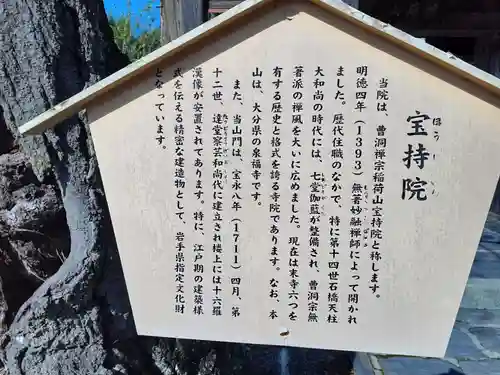 宝持院
ほうじいん
当院は、曹洞禅宗稲荷山宝持院と称します。
明徳四年(1393)無著妙融禅師によって開かれ
ました。歴代住職のなかで、特に第十四世石橋天柱
大和尚の時代には、七堂伽藍が整備され、曹洞宗無
著派の禅風を大いに広めました。現在は末寺六つを
有する歴史と格式を誇る寺院であります。なお、本
山は、大分県の泉福寺です。
また、当山門は、宝永八年(1711)四月、第
十二世、達堂察芸和尚代に建立され楼上には十六羅
漢像が安置されております。特に、江戸期の建築様
式を伝える精密な建造物として、岩手県指定文化財
となっています。